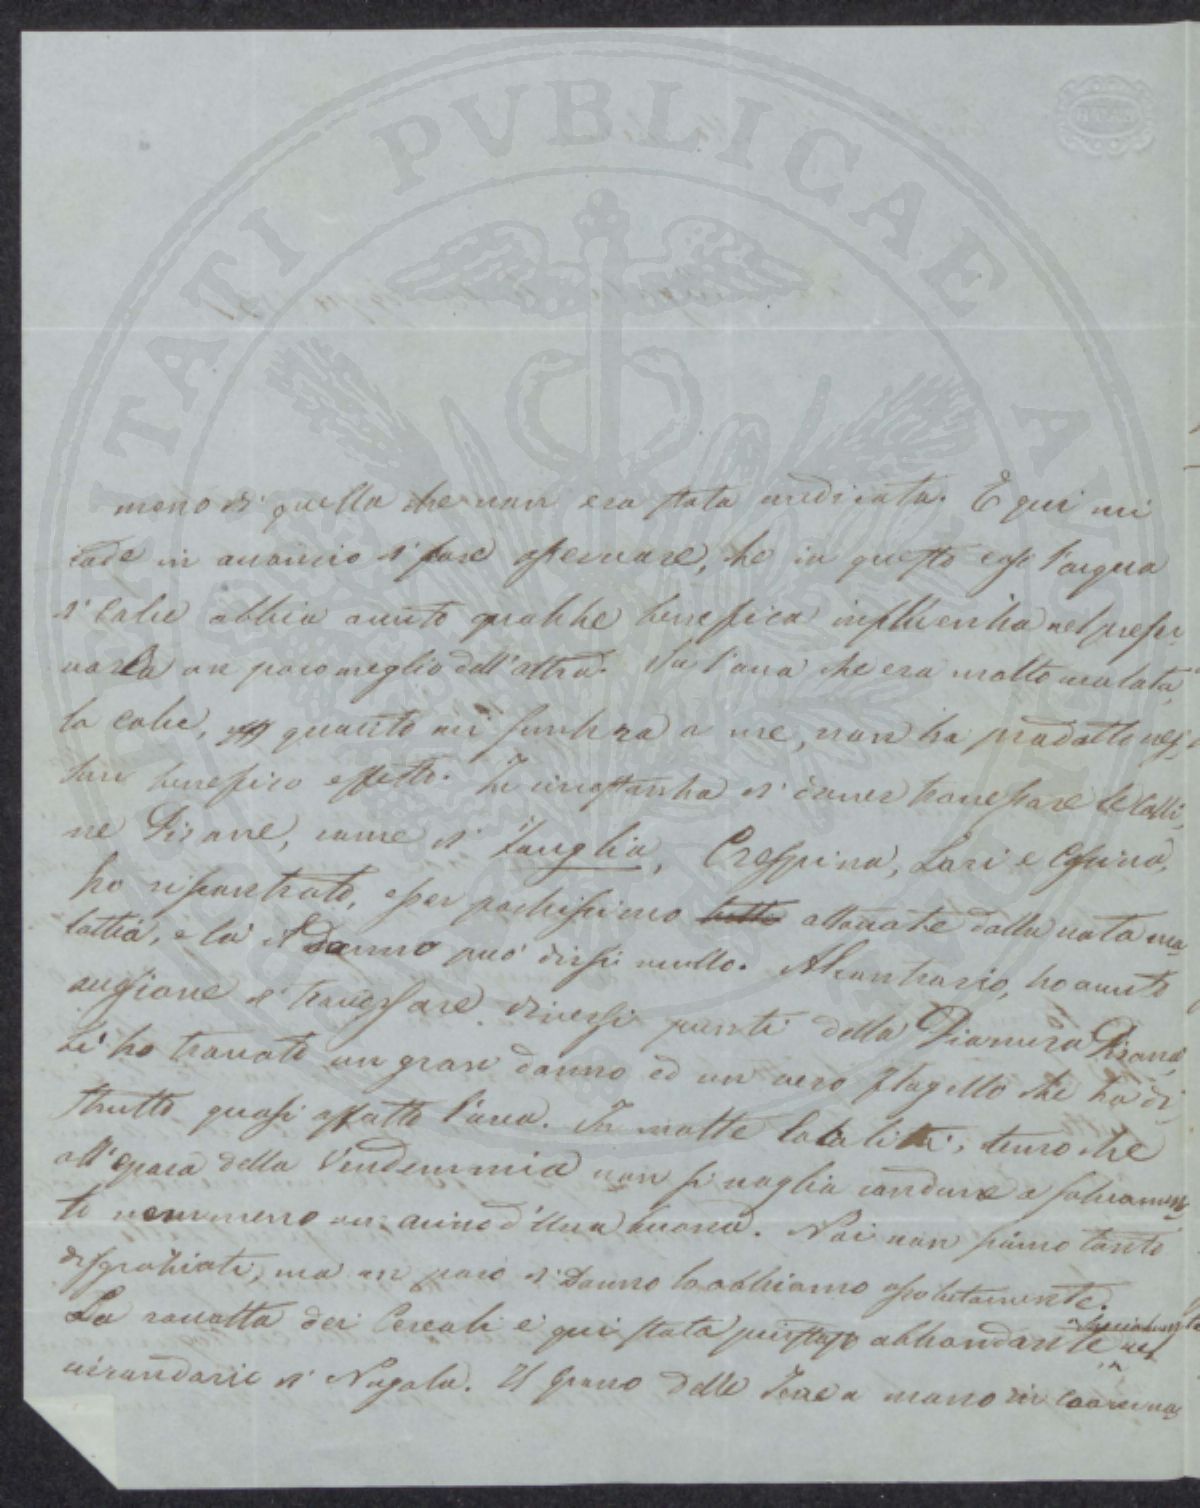 PVBLICAE
meno di quella che non era stata medicata. E qui mi
cade in acconcio di fare osservare, che in questo caso l'acqua
di Calce abbia avuto qualche benefica influenza nel preser-
varla un poco meglio dell'altra. Su l'uva che era molto malata,
la calce, quanto mi sembra a me, non ha prodotto nes-
sun benefico effetto. In circostanza di dover traversare le Colli-
ne Pisane, come di Fauglia, Crespina, Lari e
ho riscontrato, esser pochissimo attaccate dalla nota ma-
lattia, e là il Danno può dirsi nullo. Al contrario, ho avuto
cagione di traversare diversi punti della Pianura Pisana
vi ho trovato un gran danno ed un vero flagello che ha di-
strutto quasi affatto l'uva. In molte località, temo che
all'epoca della Vendemmia non si voglia condurre a salvamen-
to nemmeno un acino d'Uva buona. Noi non siamo tanto
disgraziati, ma un poco di Danno lo abbiamo assolutamente.
La raccolta dei Cereali è qui stata piuttosto abbondante, specialmente nel
circondario di Nugola. Il Grano delle Terre a mano